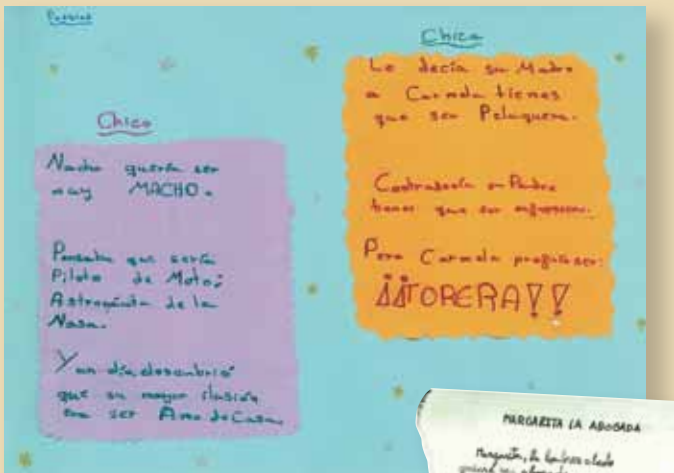 Poesías
Chico
Nacho quería ser
muy MACHO.
Pensaba que sería
Piloto de Motos
Astronauta de la
Nasa.
Y un día descubrió
que su mayor ilusión
era ser Amo de Casa.
Chica
Le decía su Madre
a Carmela tienes
que ser Peluquera.
Contradecía su Padre
tienes que ser enfermera.
Pero Carmela prefirió ser:
¡¡TORERA!!
MARGARITA LA ABOGADA
Margarita, la
quiere ser abogada